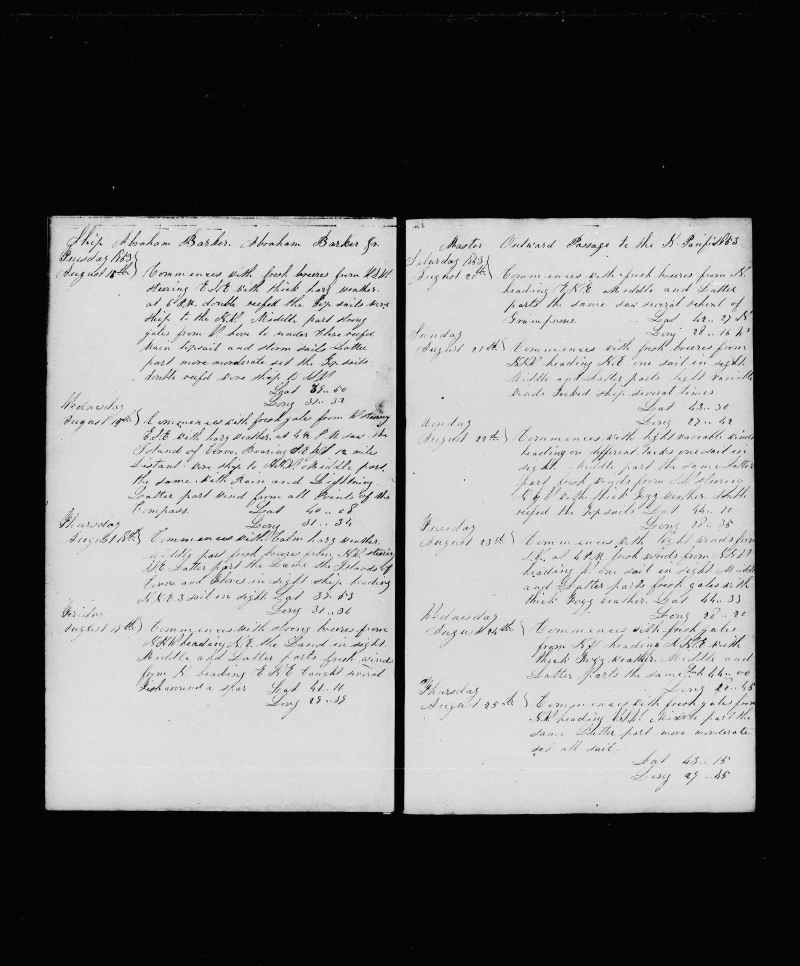 Ship Abraham Barker. Abraham Barker Jr
Tuesday 1853
August 16th } Commences with fresh breeres from WSW
sturing ENE with thick hary weather.
at 6 P.M. double reefd the Top sails wore
ship to the NW. Middle part strong
gales from W hove to under close reefd
Main topsail and storm sails Latter
part more moderate set the Top sails
double reefd wore ship to
Lat 39..50
Long 31..32
Wednesday
August 17th } Commences with fresh gales from W stuering
ENE with hary weather. at 4 P.M saw the
Island of Corvo. Bearing 12 miles
Distant wore ship to Middle part
the same with Rain and Lightning.
Latter part wind from all Points of the
Compass. Lat 40..08
Long 31..34
Thursday
August 18th } Commences with Calm hary weather.
Middle part fresh breeres from NW stuering
Latter part the Same the Islands of
Corvo and Flores in sight ship heading
NNE 3 sail in sight Lat 39..53
Long 31..36
Friday
August 19th } Commences with strong breeres from
NNW heading N.E. the Land in sight
Middle and Latter parts fresh winds
from N heading ENE Caught several
Fish around a spar Lat 41..10
Long 29..39
Master Outward Passage to the N. Pacific 1853
Saturday 1853
August 20th } Commences with fresh breeres from N.
heading ENE Middle and Latter
parts the same saw several school of
Grampuses. Lat 42..27 N
Long 28..16 W
Sunday
August 21th } Commences with fresh breeres from
NNW heading N.E. one sail in sight.
Middle and Latter parts light variable
winds tacked ship several times
Lat 43..30
Long 27..42
Monday
August 22th } Commences with light variable winds
heading on different tacks one sail in
sight. Middle part the same Latter
part fresh winds from stuering
with thick Fogg weather. double
reefd the Top sails Lat 44..10
Long 28..35
Tuesday
August 23th } Commences with light winds from
at 4 P.M. fresh winds from
heading one sail in sight Middle
and Latter parts fresh gales with
thick Fogg weather. Lat 44..33
Long 28..20
Wednesday
August 24th } Commences with fresh gales
from heading with
thick Fogg weather. Middle and
Latter parts the same. Lat 44..00
Long 28..45
Thursday
August 25th } Commences with fresh gales from
NW heading Middle part the
same Latter part more moderate
set all sail.
Lat 43..15
Long 29..45